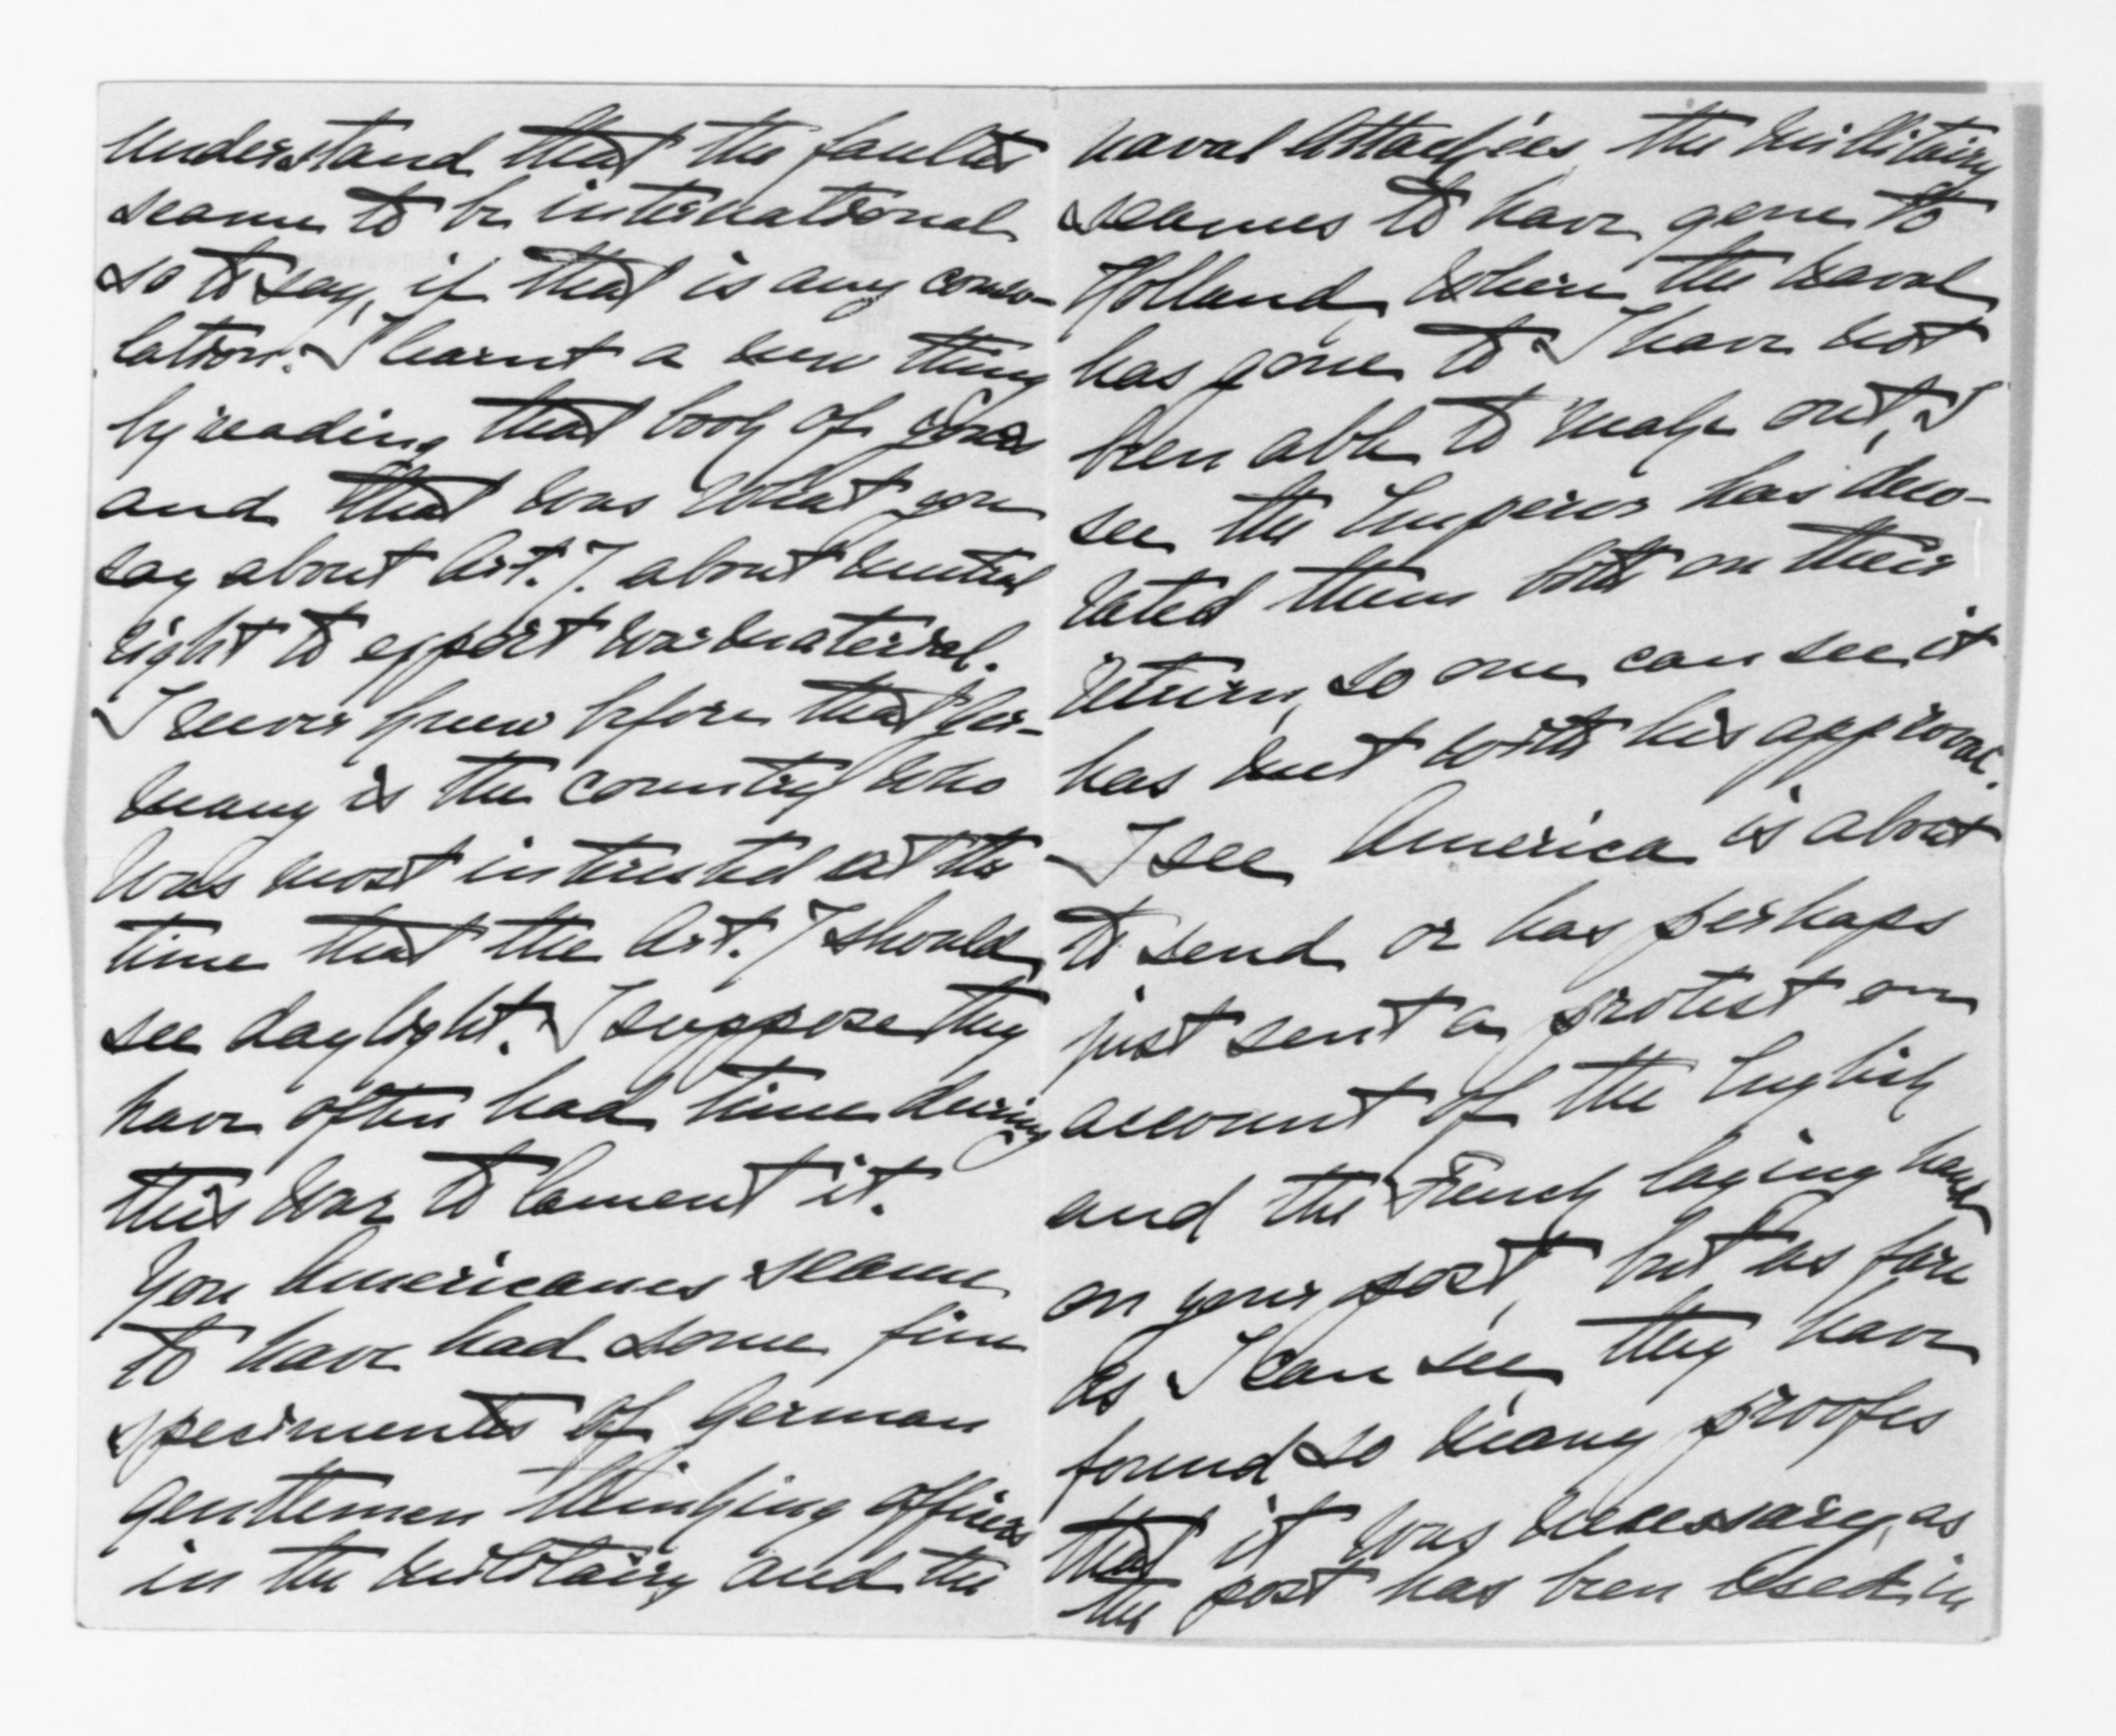 understand that the faultes
seame to be international
so to say, if that is any conso-
lation. I learnt a new thing
by reading that book of yours
and that was what you
say about Art. 7. about neutral
right to export warmaterial.
I never knew before that Ger-
many is the country who
was most interested at the
time that the Art. 7 should
see daylight. I suppose they
have often had time during
this war to lament it.
You Americanes seame
to have had some fine
specimentes of German
gentlemen thinking officers
in the militairy and the
naval Attachées, the millitairy
seames to have gone to
Holland, where the naval
has gone to I have not
been able to make out, I
see the Emperor has deco-
rated them both on their
return, so one can see it
has met with his approval.
I see America is about
to send or has perhaps
just sent a protest on
account of the English
and the French laying hand
on your post, but as fare
as I can see, they have
found so many proofes
that it was necessary, as
the post has been used in